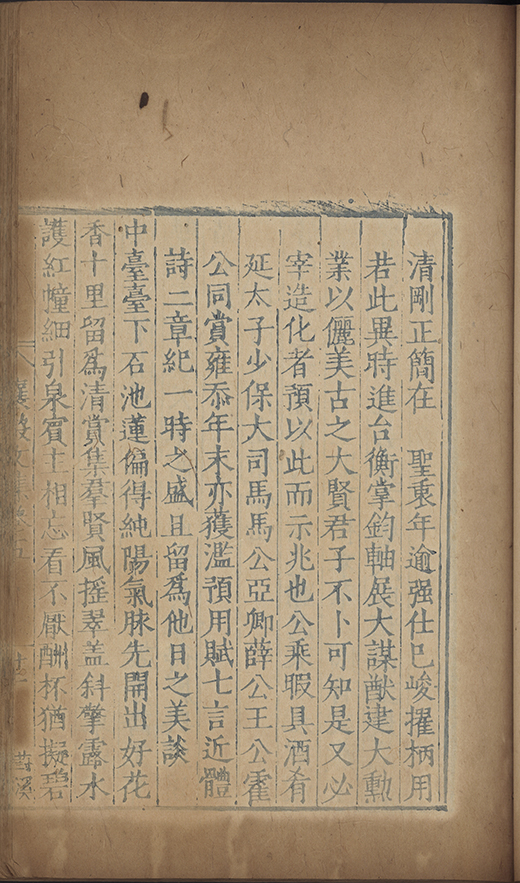 清剛正簡在　聖衷年逾强仕已峻擢柄用
若此異時進台衡掌鈞軸展大謀猷建大勳
業以儷美古之大賢君子不卜可知是又必
宰造化者預以此而示兆也公乘暇具酒肴
延太子少保大司馬馬公亞卿薛公王公霍
公同賞雍忝年末亦獲濫預用賦七言近體
詩二章紀一時之盛且留爲他日之美談
中臺臺下石池蓮偏得純陽氣脉先開出好花
香十里留爲清賞集羣賢風摇翠盖斜擎露水
護紅幢細引泉賓主相忘看不厭酬杯猶擬碧
襄毅文集卷五